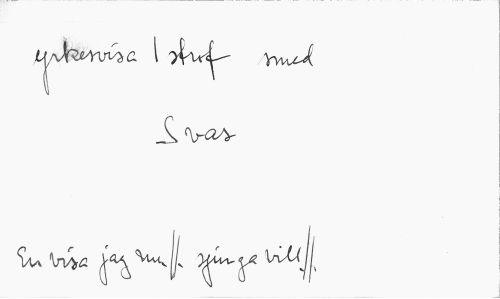 yrkesvisa 1 strof smed
Svas
En visa jag nu //. sjunga vill. //.